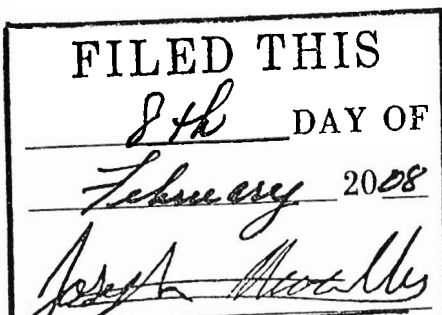 FILED THIS
8th DAY OF
February 2008
Joseph